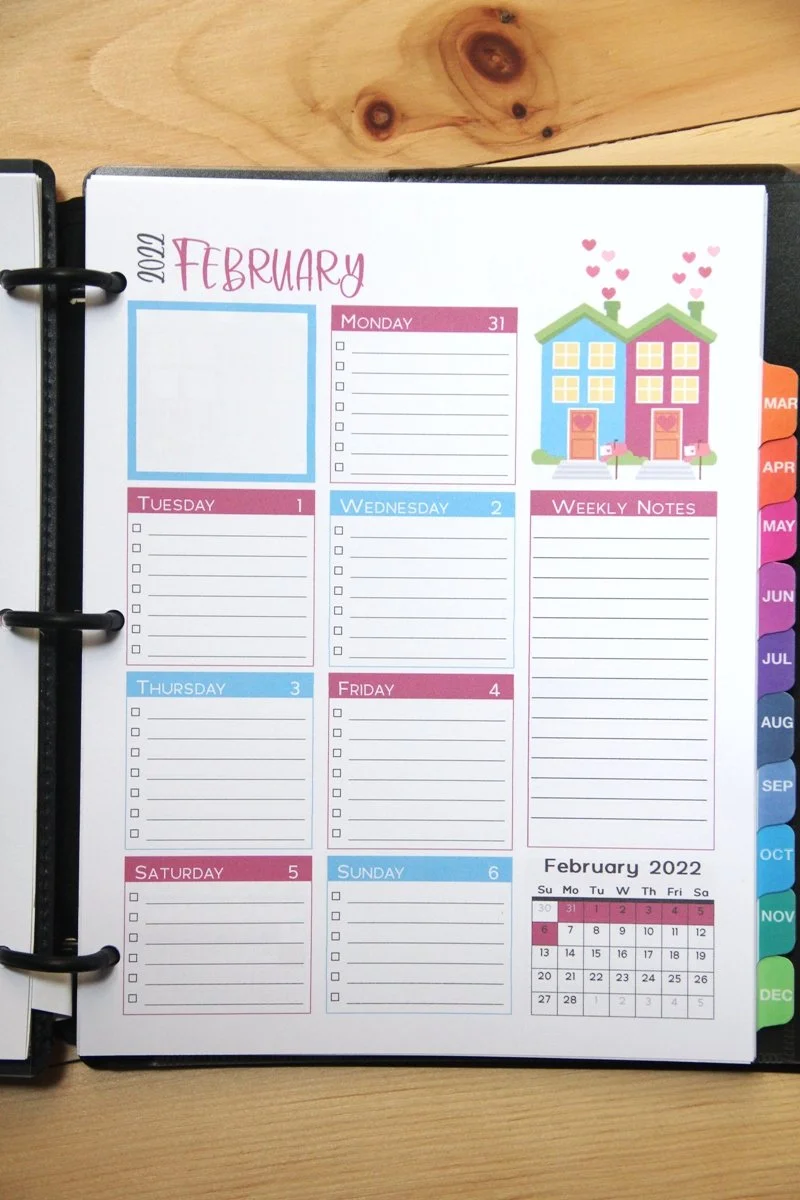 2022
FEBRUARY
MONDAY 31
TUESDAY 1
WEDNESDAY 2
WEEKLY NOTES
THURSDAY 3
FRIDAY 4
SATURDAY 5
SUNDAY 6
February 2022
Su Mo Tu W Th Fri Sa
30 31 1 2 3 4 5
6 7 8 9 10 11 12
13 14 15 16 17 18 19
20 21 22 23 24 25 26
27 28 1 2 3 4 5
MAR
APR
MAY
JUN
JUL
AUG
SEP
OCT
NOV
DEC